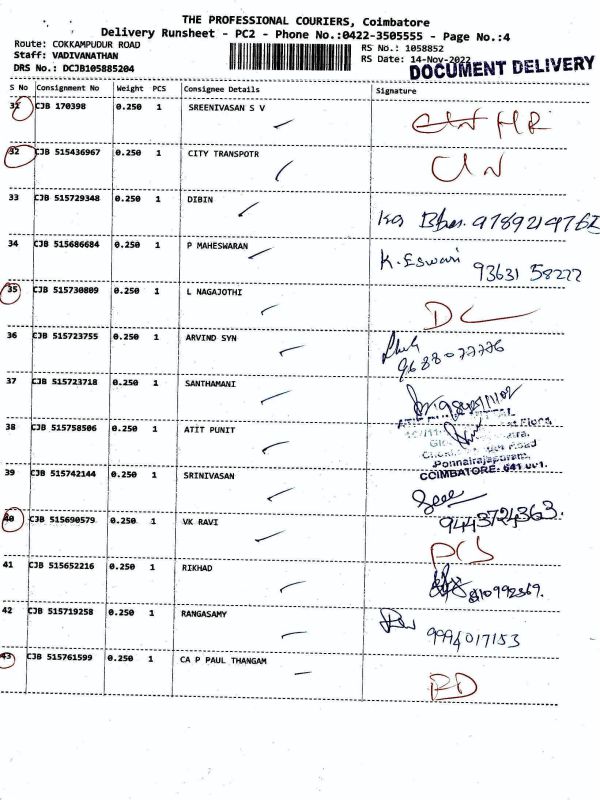 THE PROFESSIONAL COURIERS, Coimbatore
Delivery Runsheet - PC2 - Phone No.:0422-3505555 - Page No.:4
Route: COKKAMPUDUR ROAD
RS No.: 1058852
Staff: VADIVANATHAN
RS Date: 14-Nov-2022
DRS No.: DCJB105885204
DOCUMENT DELIVERY
S No Consignment No Weight PCS Consignee Details Signature
31 CJB 170398 0.250 1 SREENIVASAN S V
32 CJB 515436967 0.250 1 CITY TRANSPOTR
33 CJB 515729348 0.250 1 DIBIN
34 CJB 515686684 0.250 1 P MAHESWARAN K. Eswari 93631 58222
35 CJB 515730809 0.250 1 L NAGAJOTHI DC
36 CJB 515723755 0.250 1 ARVIND SYN 9688077776
37 CJB 515723718 0.250 1 SANTHAMANI
38 CJB 515758506 0.250 1 ATIT PUNIT
Road
Ponnairajapuram,
COIMBATORE- 641 001.
39 CJB 515742144 0.250 1 SRINIVASAN 9443724363.
40 CJB 515690579 0.250 1 VK RAVI
41 CJB 515652216 0.250 1 RIKHAD
42 CJB 515719258 0.250 1 RANGASAMY 9994017153
43 CJB 515761599 0.250 1 CA P PAUL THANGAM RD